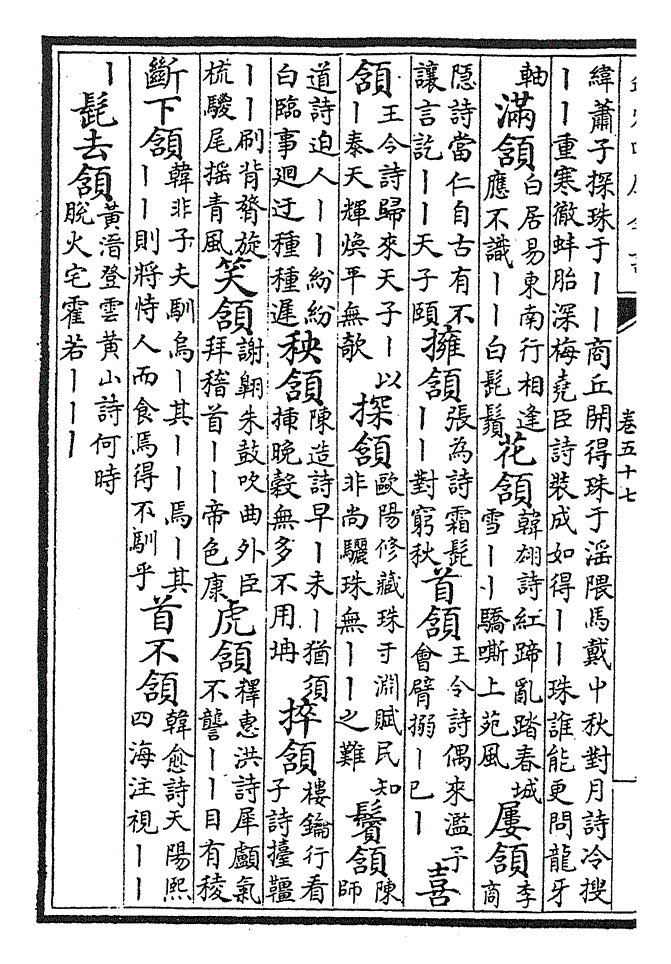 卷五十七
緯蕭子探珠于丨丨商丘開得珠于淫隈馬戴中秋對月詩冷搜
丨丨重寒徹蚌胎深梅堯臣詩裝成如得丨丨珠誰能更問龍牙
軸 滿頷 白居易東南行相逢應不識丨丨白髭鬚 花頷 韓翃詩紅蹄亂踏春城雪丨丨驕嘶上苑風 屢頷 李商
隱詩當仁自古有不讓言訖丨丨天子頤 擁頷 張為詩霜髭丨丨對窮秋 首頷 王令詩偶來濫予會臂搦丨已丨 喜
頷 王令詩歸來天子丨以丨泰天輝煥平無欹 探頷 歐陽修藏珠于淵賦民知非尚驪珠無丨丨之難 鬢頷 陳師
道詩迫人丨丨紛紛白臨事廻迂種種遲 秧頷 陳造詩早丨未丨猶須揷晚榖無多不用 捽頷 樓鑰行看子詩擡韁
丨丨刷背膋旋梳騣尾摇青風 笑頷 謝翺朱鼓吹曲外臣拜稽首丨丨帝色康 虎頷 釋惠洪詩犀顱氣不讋丨丨目有稜
斷下頷 韓非子夫馴烏丨其丨丨焉丨其丨丨則將恃人而食焉得不馴乎 首不頷 韓愈詩天陽熙四海注視丨丨
丨 髭去頷 黃溍登雲黄山詩何時脱火宅霍若丨丨丨